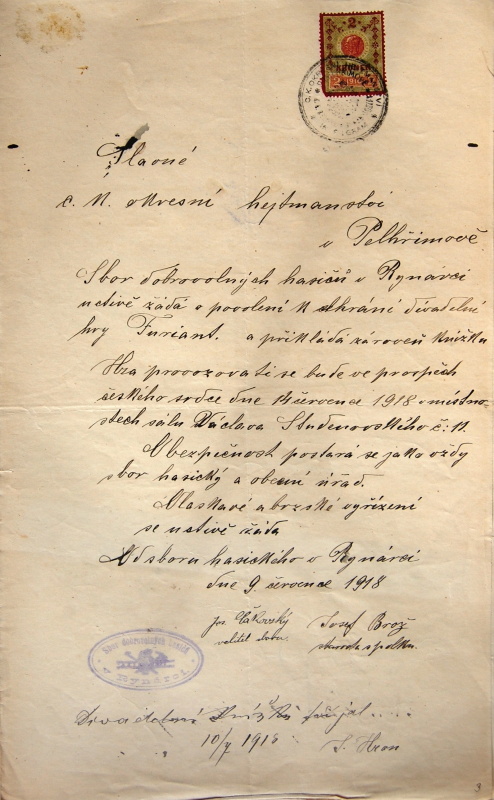 2
Slavné
c. k. okresní hejtmanství
v Pelhřimově
Sbor dobrovolných hasičů v Rynárci
uctivě žádá o povolení k sehrání divadelní
hry Furiant. a přikládá zároveň knížku
Hra provozovati se bude ve prospěch
českého srdce dne 14 července 1918 v místno-
stech sálu Václava Studenovského č: 12.
O bezpečnost postará se jako vždy
sbor hasický a obecní úřad.
O laskavé a brzské vyřízení
se uctivě žádá
Od sboru hasického v Rynárci
dne 9. července 1918
Jos Čákovský Josef Brož
velitel sboru. starosta spolku.
Sbor dobrovolných hasičů
v Rynárci.
Divadelní knížku přijal
10/7 1918 J. Hron
3